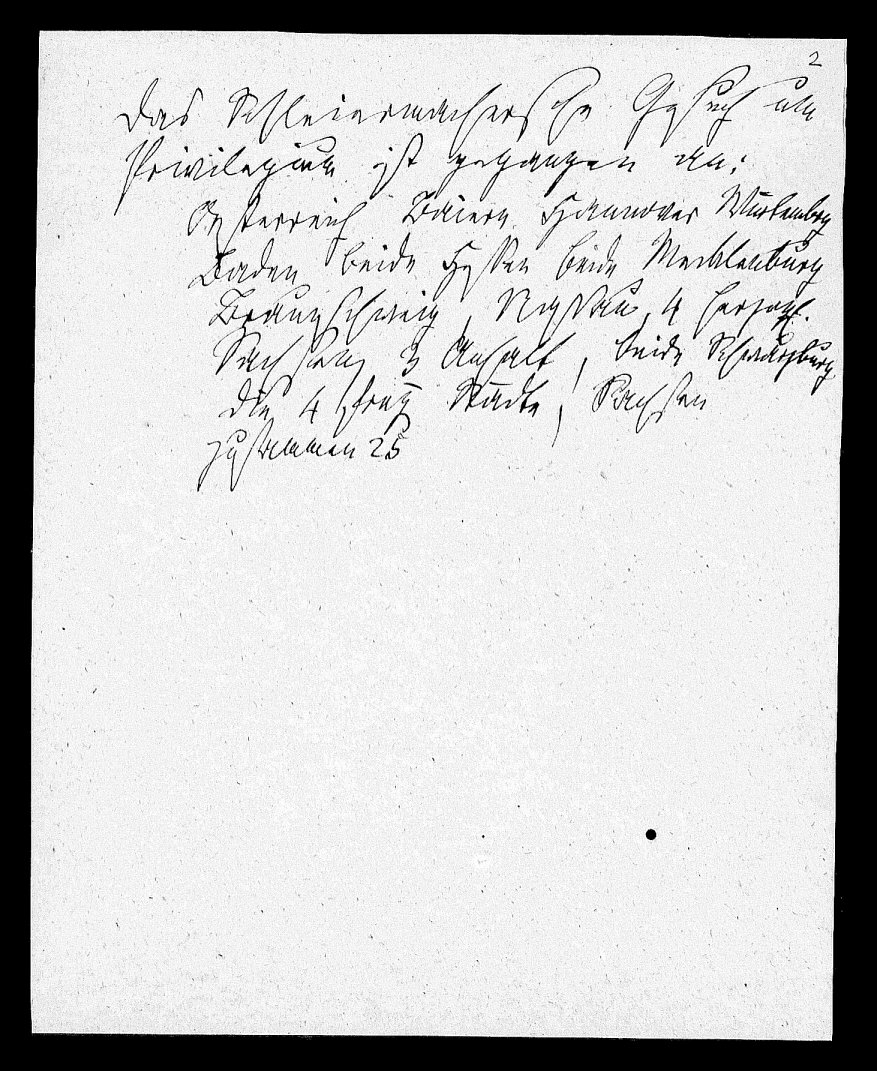 2
Das Schleiermachersche Gesuch um
Privilegium ist gegangen an:
Oesterreich Baiern Hannover Würtemberg
Baden beide Hessen beide Mecklenburg
Braunschweig, Nassau, 4 herzogl.
Sachsen, 3 Anhalt, beide Schwarzburg
die 4 freie Städte, Sachsen
zusammen 25